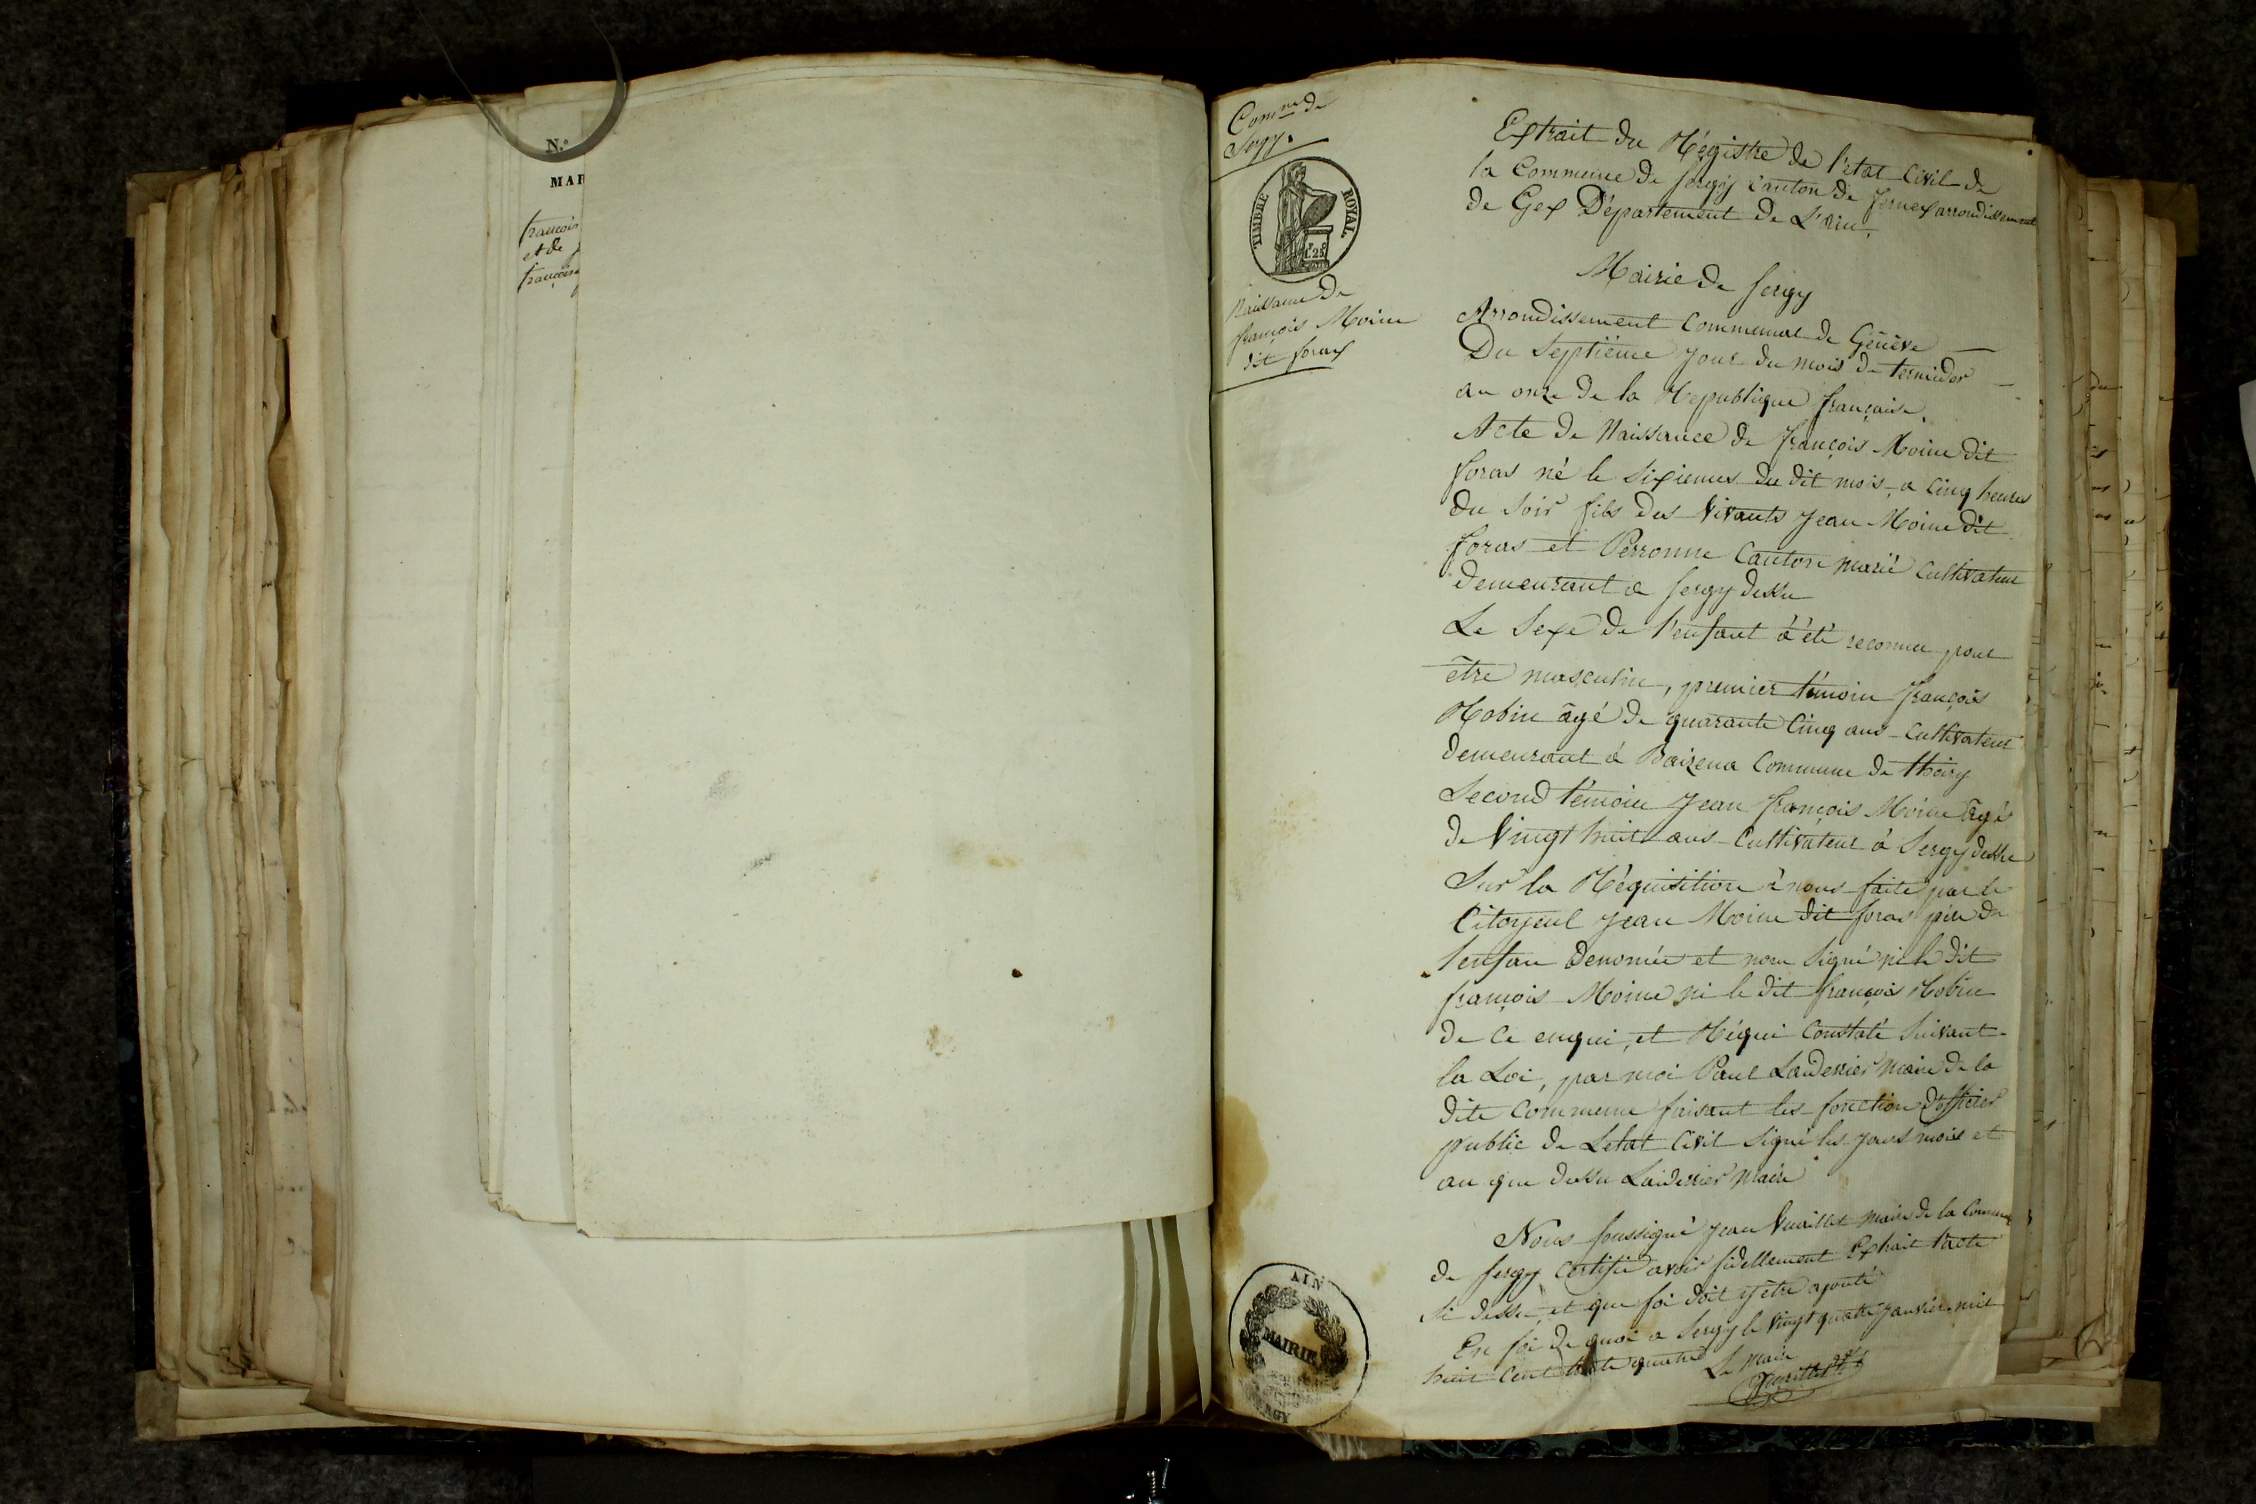 N.°
MAR
francois
et de
francois
Comm.ne de
Sergy.
TIMBRE ROYAL
Naissance de
françois Moine
dit foras
Extrait du Régistre de l'état Civil de
la Commune de Sergy Canton de fernex arrondissement
de Gex Département de L'ain.
Mairie de Sergy
Arrondissement Communal de Genève
Du Septiéme jour du mois de termidor
an onze de la Republique française.
Acte de Naissance de françois Moine dit
foras né le Sixiemes du dit mois, a Cinq heures
du Soir fils des Vivants Jean Moine dit
foras et Perronne Canton marié Cultivateur
demeurant a Sergy dessu
Le Sexe de l'enfant à été reconnu pour
être masculin, premier témoin françois
Robin âgé de quarante Cinq ans Cultivateur
demeurant à Baizena Commune de thoiry
Second témoin Jean françois Moine âgé
de Vingt huit ans Cultivateur à Sergy dessu
Sur la Réquisition à nous faite par le
Citoyent Jean Moine dit foras pére de
l'enfan denomée et nom Signé ni le dit
françois Moine ni le dit françois Robin
de Ce enqui, et Réqui Constaté Suivant
la Loi, par moi Paul Landerier Maire de la
dite Commune faisant les fonction d'officier
public de Letat Civil Signé les jours mois et
an que dessu Landerier Maire
Nous Soussigné Jean Vuaillet Maire de la Commune
de Sergy Certifie avoir fidellement Extrait l'acte
Si dessu, et que foi doit y être ajouté
En foi de quoi a Sergy le Vingt quatre Janvier mil
huit Cent trente quatre Le Maire
AIN
MAIRIE